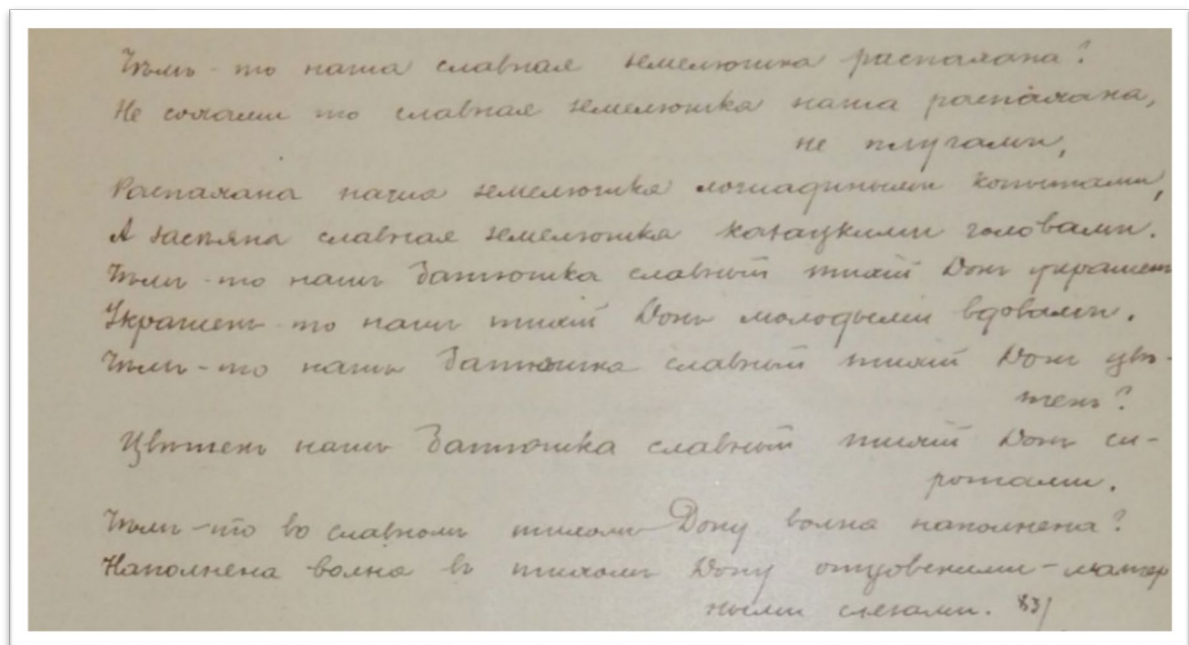 Чѣмъ-то наша славная земелюшка распахана?
Не сохами то славная земелюшка наша распахана,
не плугами,
Распахана наша земелюшка лошадиными копытами,
А засѣяна славная земелюшка казацкими головами.
Чѣмъ-то нашъ батюшка славный тихій Донъ украшен
Украшенъ-то нашъ тихій Донъ молодыми вдовами.
Чѣмъ-то нашъ батюшка славный тихій Донъ цвѣ-
тенъ?
Цвѣтенъ нашъ батюшка славный тихій Донъ си-
ротами.
Чѣмъ-то во славномъ тихомъ Дону волна наполнена?
Наполнена волна въ тихомъ Дону отцовскими-матер
ными слезами. 83)